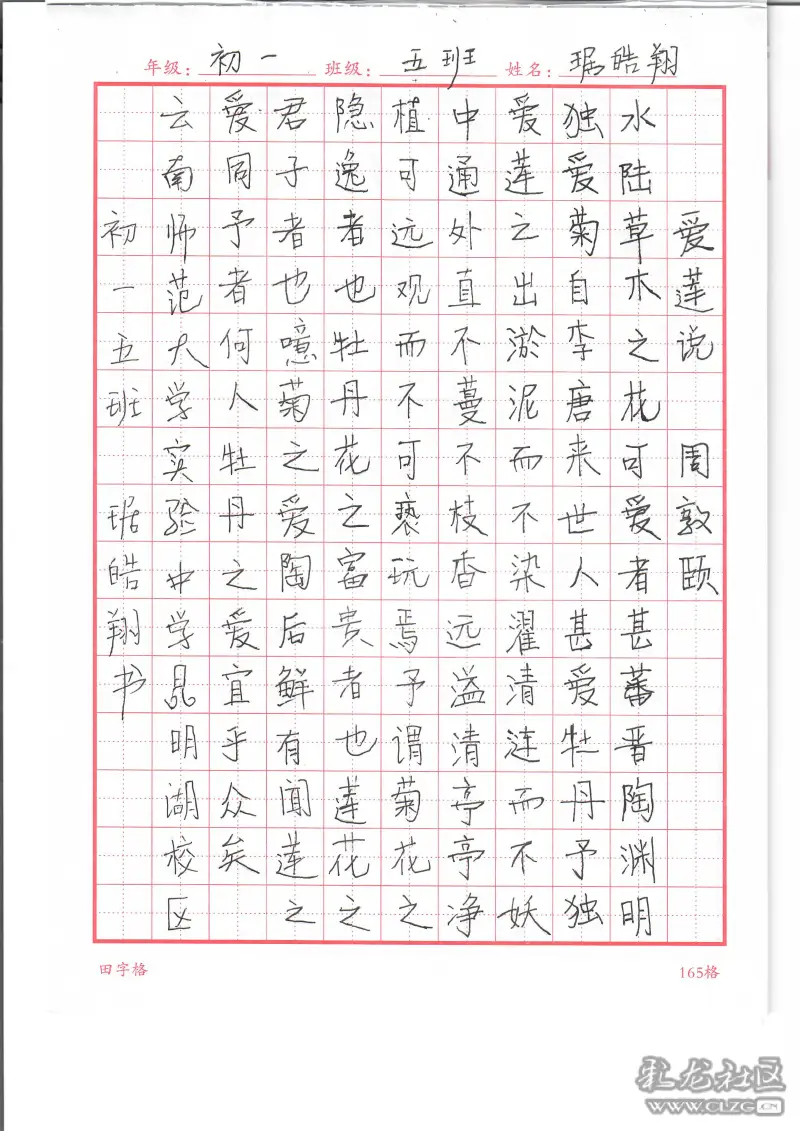 年级：初一 班级：五班 姓名：琚皓翔
爱莲说 周敦颐
水陆草木之花可爱者甚蕃晋陶渊明
独爱菊自李唐来世人甚爱牡丹予独
爱莲之出淤泥而不染濯清涟而不妖
中通外直不蔓不枝香远溢清亭亭净
植可远观而不可亵玩焉予谓菊花之
隐逸者也牡丹花之富贵者也莲花之
君子者也噫菊之爱陶后鲜有闻莲之
爱同予者何人牡丹之爱宜乎众矣
云南师范大学实验中学昆明湖校区
初一五班 琚皓翔书
田字格 165格
彩龙社区
WWW.CLZG.CN